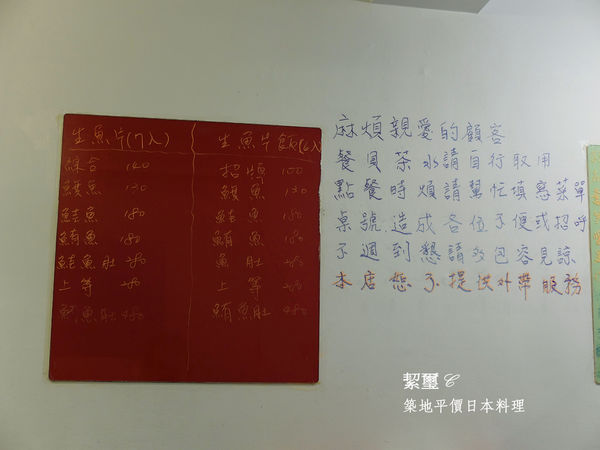 生魚片(7入)
綜合 140
鰻魚 130
鮭魚 180
鮪魚 180
鮭魚肚 280
上等 280
魚肚 480
生魚片飯(6入)
招煩 100
鰻魚 130
鮭魚 180
鮪魚 180
魚肚 280
上等 280
鮪魚肚 480
麻煩親愛的顧客
餐具茶水請自行取用
點餐時煩請幫忙填寫菜單
桌號造成各位不便或招呼
不週到懇請多包容見諒
本店恕不提供外帶服務
絜璽
築地平價日本料理